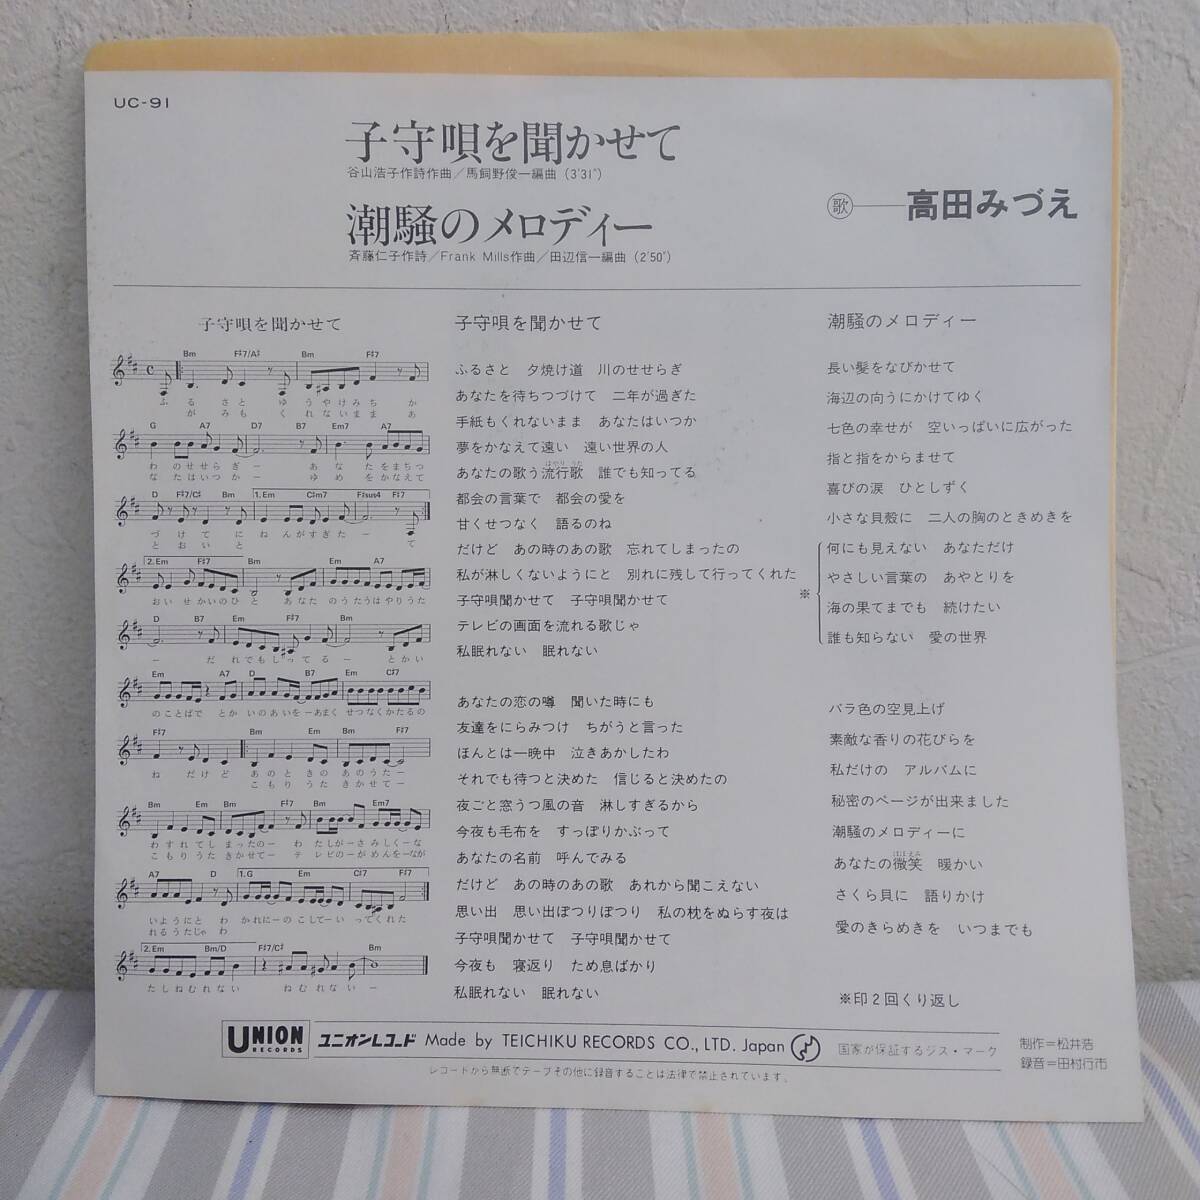 UC-91
子守唄を聞かせて
谷山浩子作詩作曲／馬飼野俊一編曲（3'31"）
潮騒のメロディー
斉藤仁子作詩／Frank Mills作曲／田辺信一編曲（2'50"）
歌——高田みづえ
子守唄を聞かせて
Bm F♯7/A♯ Bm F♯7
ふ る さ と ゆ う や け み ち か
が み も く れ な い ま ま あ
G A7 D7 B7 Em7 A7
わ の せ せ ら ぎ ー あ な た を ま ち つ
な た は い つ か ー ゆ め を か な え て
D F♯7/C♯ Bm 1. Em C♯m7 F♯sus4 F♯7
づ け て に ね ん が す ぎ た ー て
と お い と
2. Em F♯7 Bm Em A7
お い せ か い の ひ と あ な た の う た う は や り う た
D B7 Em F♯7 Bm
ー だ れ で も し っ て る ー と か い
Em A7 D B7 Em C♯7
の こ と ば で と か い の あ い を ー あ ま く せ つ な く か た る の
F♯7 Bm Em Bm F♯7
ね だ け ど あ の と き の あ の う た ー
こ も り う た き か せ て ー
Bm Em Bm F♯7 Bm Em7
わ す れ て し ま っ た の ー わ た し が ー さ み し く ー な
こ も り う た き か せ て ー テ レ ビ の ー が め ん を ー な が
A7 D 1. G Em C♯7 F♯7
い よ う に と わ か れ に ー の こ し て ー い っ て く れ た
れ る う た じ ゃ わ
2. Em Bm/D F♯7/C♯ Bm
た し ね む れ な い ね む れ な い ー
子守唄を聞かせて
ふるさと 夕焼け道 川のせせらぎ
あなたを待ちつづけて 二年が過ぎた
手紙もくれないまま あなたはいつか
夢をかなえて遠い 遠い世界の人
あなたの歌う流行歌 誰でも知ってる
はやり うた
都会の言葉で 都会の愛を
甘くせつなく 語るのね
だけど あの時のあの歌 忘れてしまったの
私が淋しくないようにと 別れに残して行ってくれた
子守唄聞かせて 子守唄聞かせて
テレビの画面を流れる歌じゃ
私眠れない 眠れない
あなたの恋の噂 聞いた時にも
友達をにらみつけ ちがうと言った
ほんとは一晩中 泣きあかしたわ
それでも待つと決めた 信じると決めたの
夜ごと窓うつ風の音 淋しすぎるから
今夜も毛布を すっぽりかぶって
あなたの名前 呼んでみる
だけど あの時のあの歌 あれから聞こえない
思い出 思い出ぽつりぽつり 私の枕をぬらす夜は
子守唄聞かせて 子守唄聞かせて
今夜も 寝返り ため息ばかり
私眠れない 眠れない
潮騒のメロディー
長い髪をなびかせて
海辺の向うにかけてゆく
七色の幸せが 空いっぱいに広がった
指と指をからませて
喜びの涙 ひとしずく
小さな貝殻に 二人の胸のときめきを
※
何にも見えない あなただけ
やさしい言葉の あやとりを
海の果てまでも 続けたい
誰も知らない 愛の世界
バラ色の空見上げ
素敵な香りの花びらを
私だけの アルバムに
秘密のページが出来ました
潮騒のメロディーに
あなたの微笑 暖かい
ほほえみ
さくら貝に 語りかけ
愛のきらめきを いつまでも
※印2回くり返し
UNION RECORDS ユニオンレコード Made by TEICHIKU RECORDS CO., LTD. Japan 国家が保証するジス・マーク
制作=松井浩
録音=田村行市
レコードから無断でテープその他に録音することは法律で禁止されています。